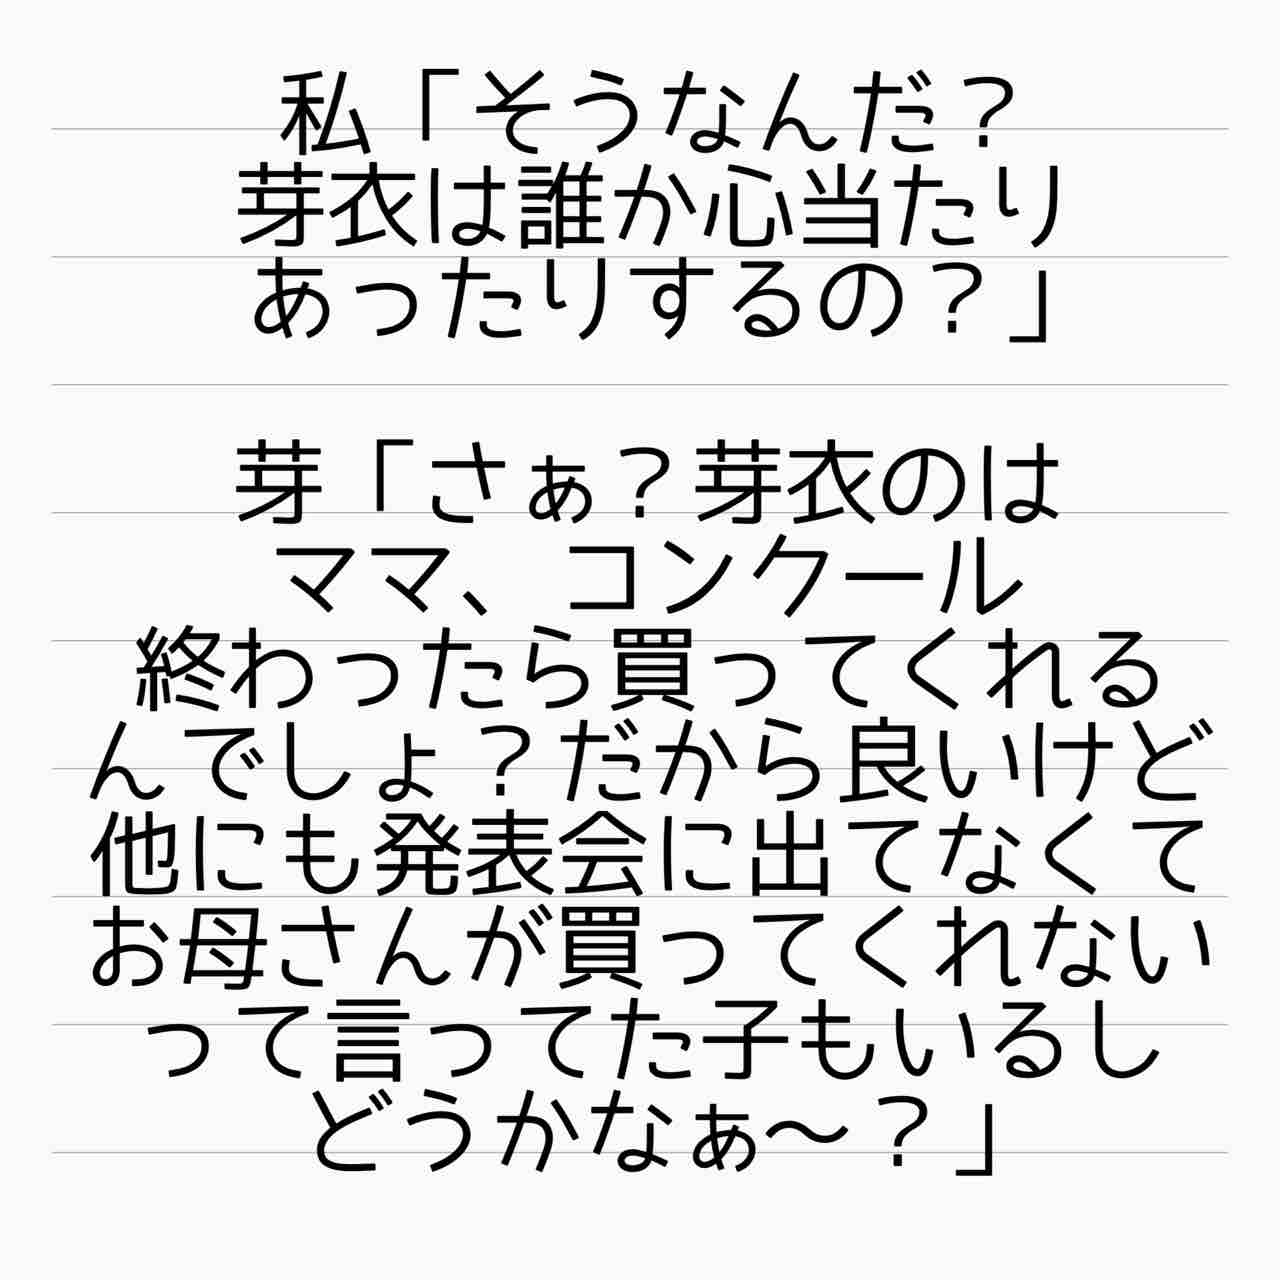 私「そうなんだ？
芽衣は誰か心当たり
あったりするの？」
芽「さぁ？芽衣のは
ママ、コンクール
終わったら買ってくれる
んでしょ？だから良いけど
他にも発表会に出てなくて
お母さんが買ってくれない
って言ってた子もいるし
どうかなぁ〜？」